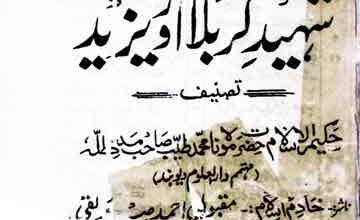 شہیدِ کربلا اور یزید
تصنیف
حکیم الاسلام حضرت مولانا محمد طیب صاحب مدظلہ
(مہتمم دارالعلوم دیوبند)
ناشر: خادم الاسلام: مقبول احمد